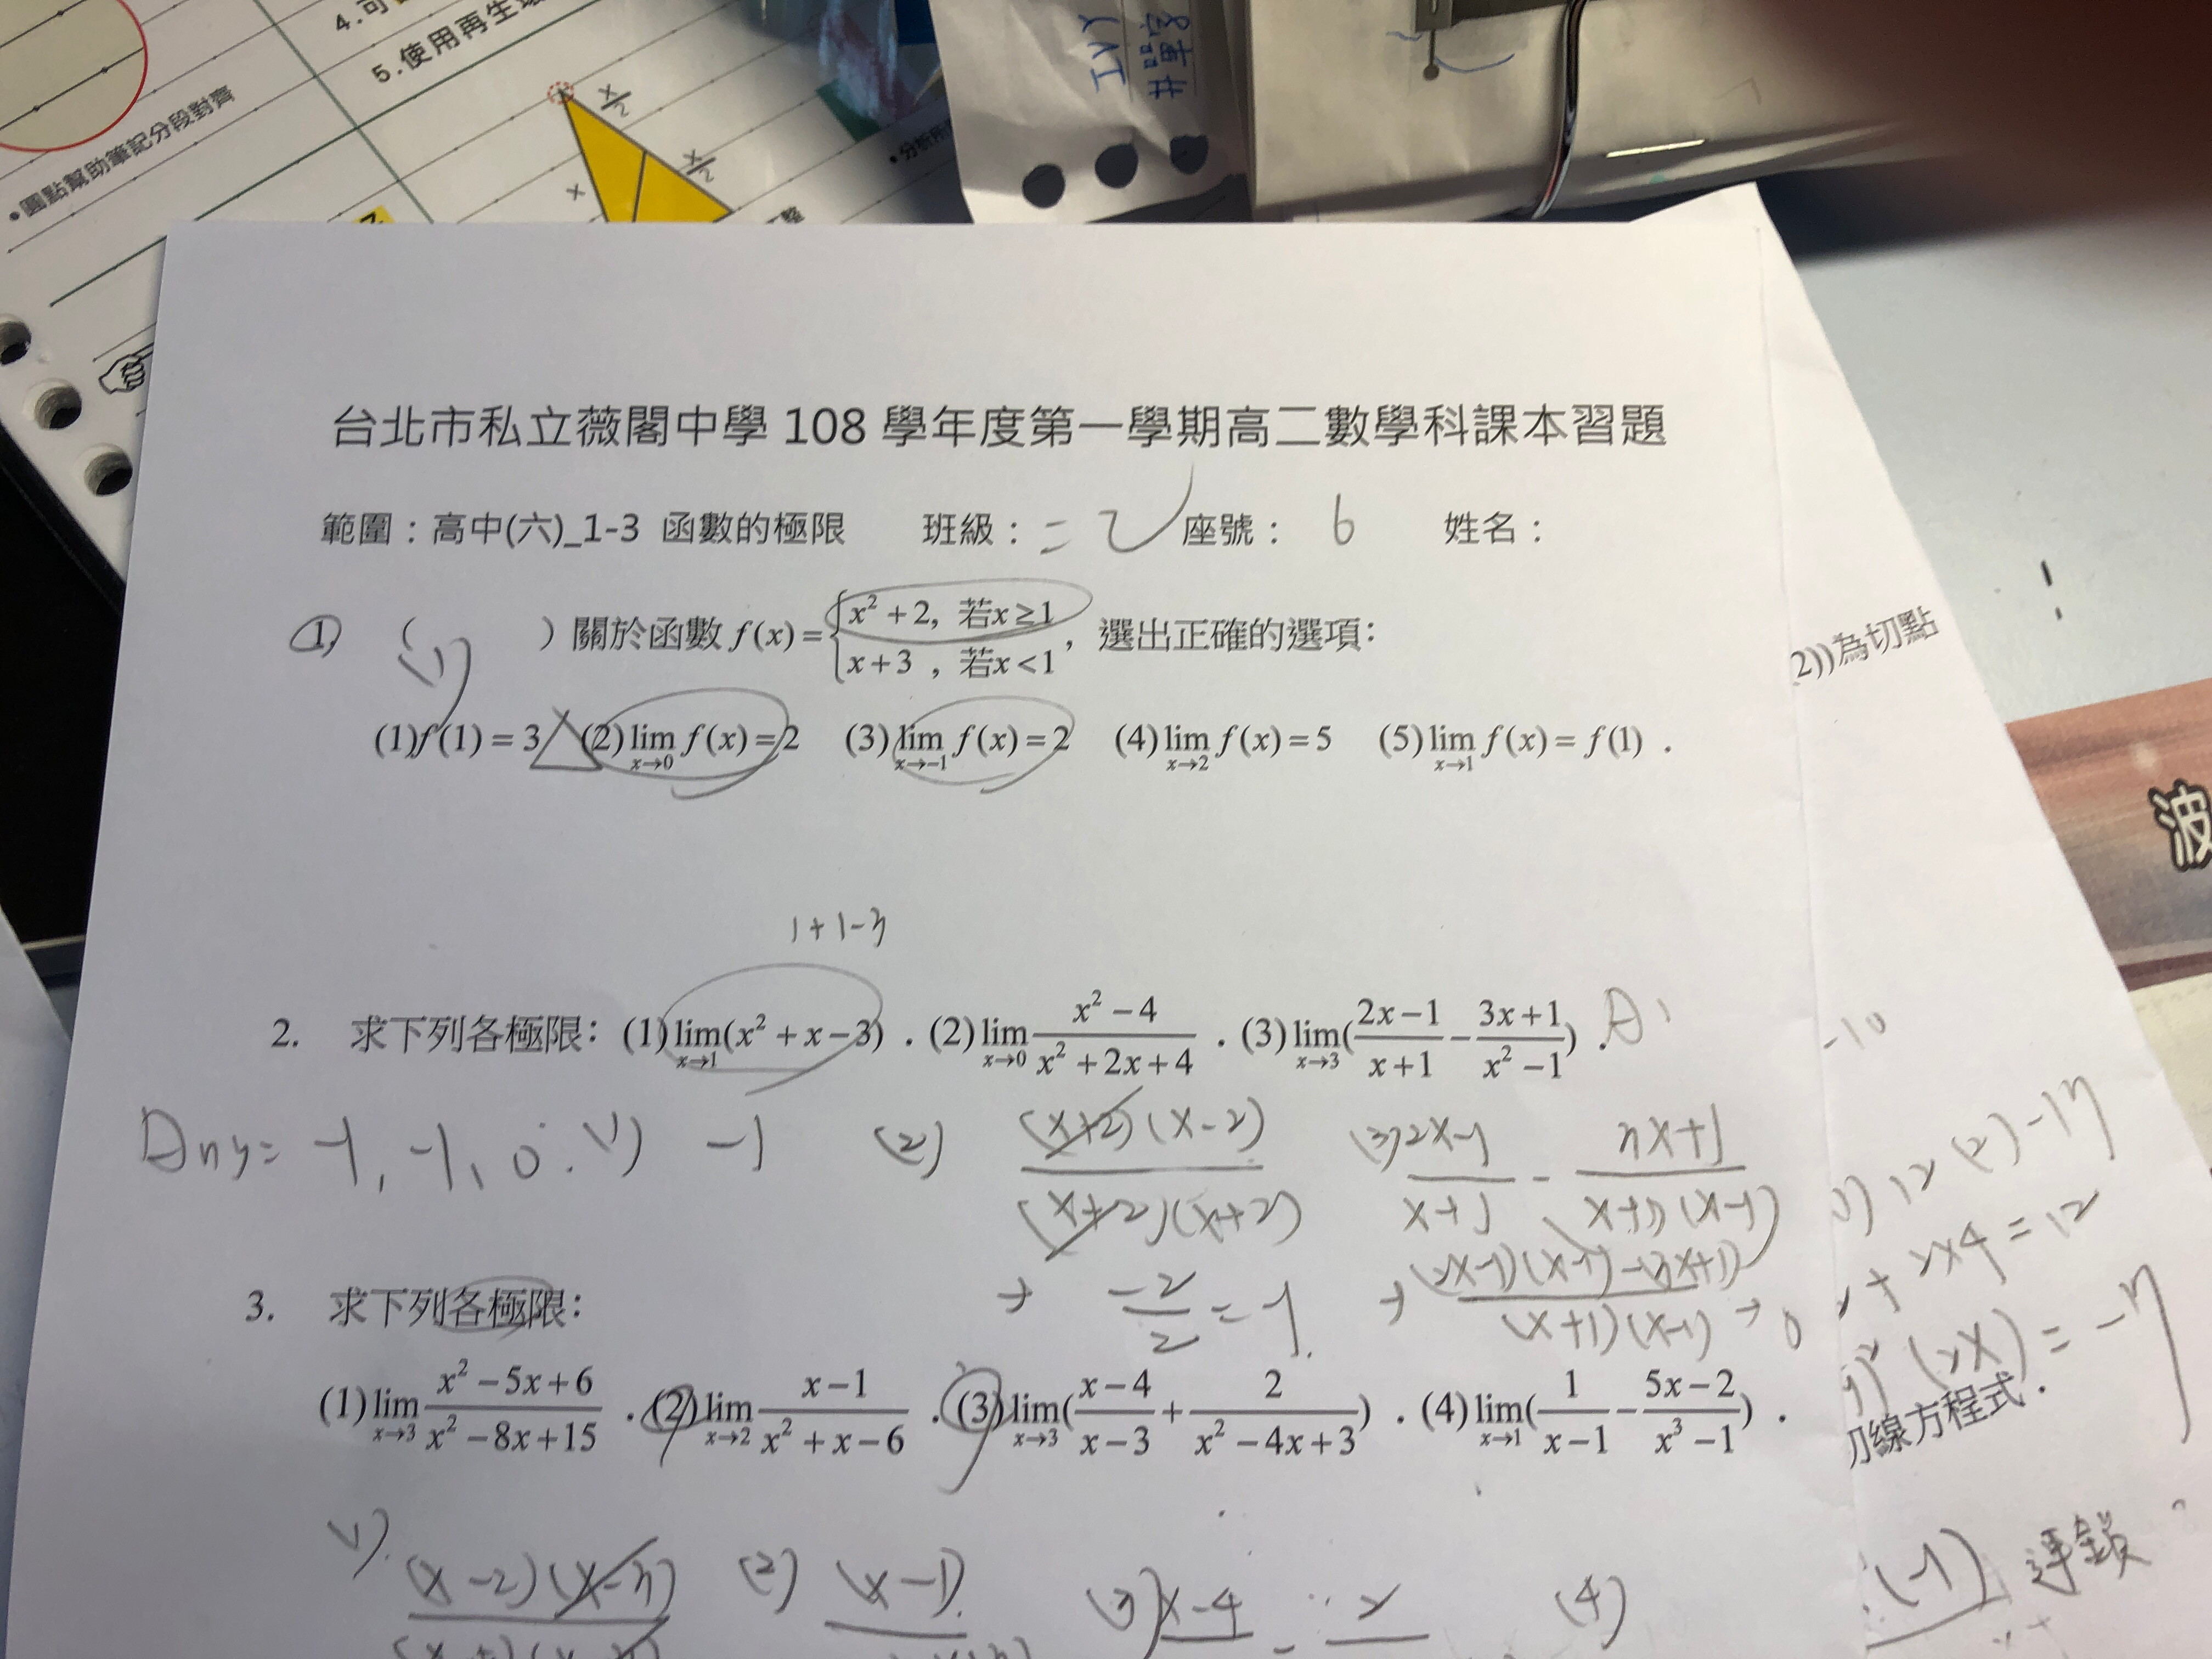 4.可
5.使用再生環
•圓點幫助筆記分段對齊
x/2
x/2
x
•分析所
IVY
台北市私立薇閣中學 108 學年度第一學期高二數學科課本習題
範圍：高中(六)_1-3 函數的極限 班級：二 2 座號： 6 姓名：
1, ( (1) ) 關於函數 f(x) = { x² + 2, 若x ≥ 1
x + 3 , 若x < 1 , 選出正確的選項：
(1)f(1) = 3 (2) lim x→0 f(x) = 2 (3) lim x→-1 f(x) = 2 (4) lim x→2 f(x) = 5 (5) lim x→1 f(x) = f(1) .
2))為切點
波
1+1-3
2. 求下列各極限：(1) lim x→1 (x² + x - 3) . (2) lim x→0 (x² - 4)/(x² + 2x + 4) . (3) lim x→3 ((2x - 1)/(x + 1) - (3x + 1)/(x² - 1)) .
-10
Ans= -1, -1, 0. (1) -1 (2) (x+2)(x-2)/(x+2)(x+2) (3) 2x-1/x+1 - 3x+1/(x+1)(x-1)
→ -2/2 = -1. → (2x-1)(x-1)-(3x+1)/(x+1)(x-1) → 0
3. 求下列各極限：
(1) lim x→3 (x² - 5x + 6)/(x² - 8x + 15) . (2) lim x→2 (x - 1)/(x² + x - 6) . (3) lim x→3 ((x - 4)/(x - 3) + 2/(x² - 4x + 3)) . (4) lim x→1 (1/(x - 1) - (5x - 2)/(x³ - 1)) .
切線方程式.
(1). (x-2)(x-3) (2) (x-1) (3) x-4 - 2 (4)
(-1) 連鎖